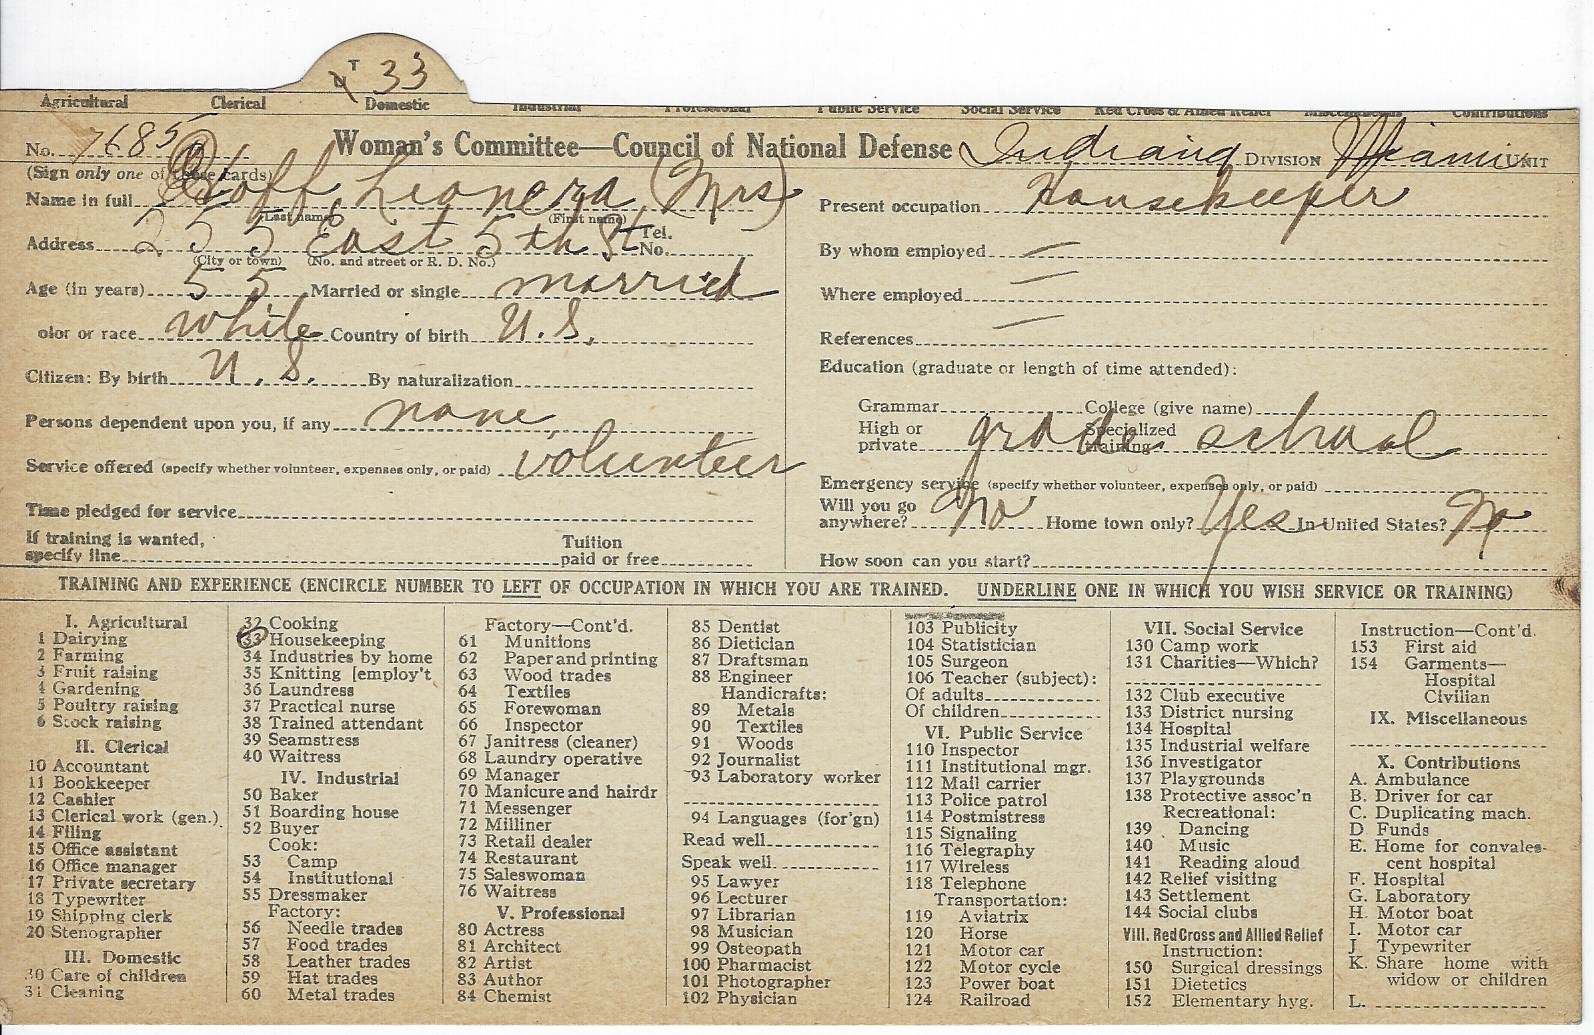 T 33
Agricultural Clerical Domestic Industrial Professional Public Service Social Service Red Cross & Allied Relief Miscellaneous Contributions
No. 7685 Woman's Committee—Council of National Defense Indiana DIVISION Miami UNIT
(Sign only one of these cards)
Name in full Leonera (Mrs) Present occupation Housekeeper
(Last name) (First name)
Address 255 East 5th St Tel. No.
(City or town) (No. and street or R. D. No.)
By whom employed —
Age (in years) 55 Married or single married Where employed —
olor or race White Country of birth U.S. References —
Citizen: By birth U.S. By naturalization
Education (graduate or length of time attended):
Persons dependent upon you, if any none,
Grammar College (give name)
High or private Specialized training grade school
Service offered (specify whether volunteer, expenses only, or paid) volunteer
Emergency service (specify whether volunteer, expenses only, or paid)
Time pledged for service
Will you go anywhere? No Home town only? Yes In United States? No
If training is wanted, specify line Tuition paid or free
How soon can you start?
TRAINING AND EXPERIENCE (ENCIRCLE NUMBER TO LEFT OF OCCUPATION IN WHICH YOU ARE TRAINED. UNDERLINE ONE IN WHICH YOU WISH SERVICE OR TRAINING)
I. Agricultural
1 Dairying
2 Farming
3 Fruit raising
4 Gardening
5 Poultry raising
6 Stock raising
II. Clerical
10 Accountant
11 Bookkeeper
12 Cashier
13 Clerical work (gen.)
14 Filing
15 Office assistant
16 Office manager
17 Private secretary
18 Typewriter
19 Shipping clerk
20 Stenographer
III. Domestic
30 Care of children
31 Cleaning
32 Cooking
33 Housekeeping
34 Industries by home
35 Knitting [employ't
36 Laundress
37 Practical nurse
38 Trained attendant
39 Seamstress
40 Waitress
IV. Industrial
50 Baker
51 Boarding house
52 Buyer
Cook:
53 Camp
54 Institutional
55 Dressmaker
Factory:
56 Needle trades
57 Food trades
58 Leather trades
59 Hat trades
60 Metal trades
Factory—Cont'd.
61 Munitions
62 Paper and printing
63 Wood trades
64 Textiles
65 Forewoman
66 Inspector
67 Janitress (cleaner)
68 Laundry operative
69 Manager
70 Manicure and hairdr
71 Messenger
72 Milliner
73 Retail dealer
74 Restaurant
75 Saleswoman
76 Waitress
V. Professional
80 Actress
81 Architect
82 Artist
83 Author
84 Chemist
85 Dentist
86 Dietician
87 Draftsman
88 Engineer
Handicrafts:
89 Metals
90 Textiles
91 Woods
92 Journalist
93 Laboratory worker
94 Languages (for'gn)
Read well
Speak well
95 Lawyer
96 Lecturer
97 Librarian
98 Musician
99 Osteopath
100 Pharmacist
101 Photographer
102 Physician
103 Publicity
104 Statistician
105 Surgeon
106 Teacher (subject):
Of adults
Of children
VI. Public Service
110 Inspector
111 Institutional mgr.
112 Mail carrier
113 Police patrol
114 Postmistress
115 Signaling
116 Telegraphy
117 Wireless
118 Telephone
Transportation:
119 Aviatrix
120 Horse
121 Motor car
122 Motor cycle
123 Power boat
124 Railroad
VII. Social Service
130 Camp work
131 Charities—Which?
132 Club executive
133 District nursing
134 Hospital
135 Industrial welfare
136 Investigator
137 Playgrounds
138 Protective assoc'n
Recreational:
139 Dancing
140 Music
141 Reading aloud
142 Relief visiting
143 Settlement
144 Social clubs
VIII. Red Cross and Allied Relief
Instruction:
150 Surgical dressings
151 Dietetics
152 Elementary hyg.
Instruction—Cont'd.
153 First aid
154 Garments—
Hospital
Civilian
IX. Miscellaneous
X. Contributions
A. Ambulance
B. Driver for car
C. Duplicating mach.
D Funds
E. Home for convales-
cent hospital
F. Hospital
G. Laboratory
H. Motor boat
I. Motor car
J. Typewriter
K. Share home with
widow or children
L.